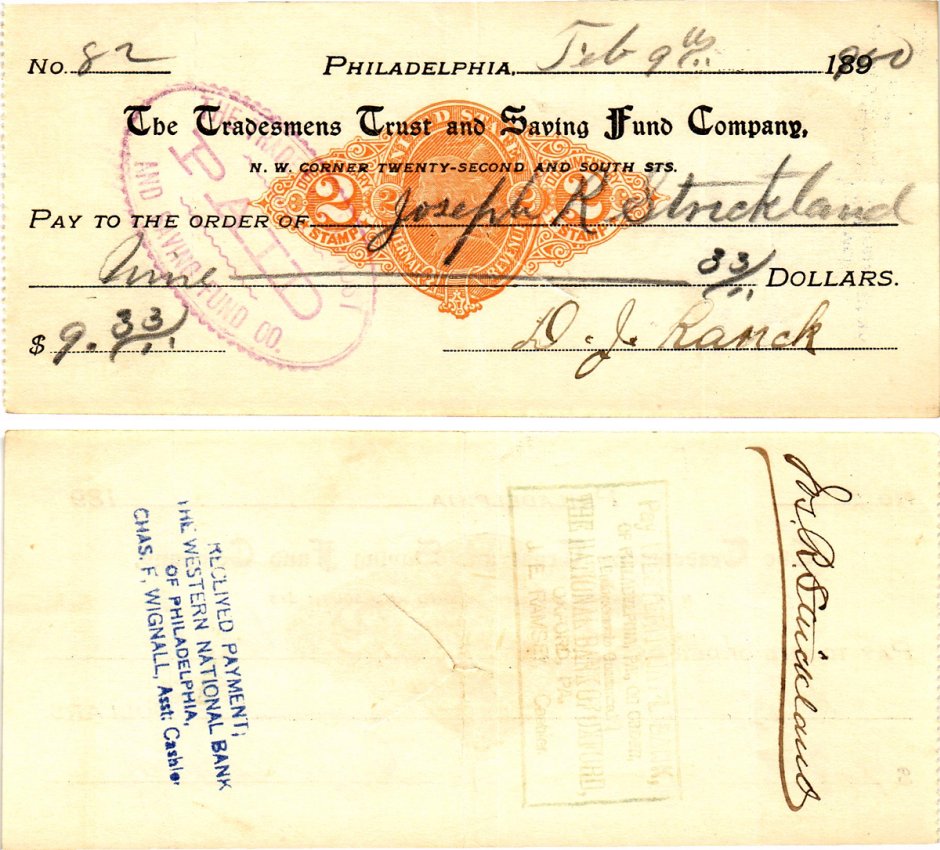 No. 82 PHILADELPHIA, Feb 9th 1900
The Tradesmens Trust and Saving Fund Company,
N. W. CORNER TWENTY-SECOND AND SOUTH STS.
PAY TO THE ORDER OF Joseph R. Strickland
Nine 33/ DOLLARS.
$ 9. 33/
D. J. Ranck
PAID
AND SAVING FUND CO.
UNITED STATES
INTERNAL REVENUE
2 2 2 2
STAMP STAMP
RECEIVED PAYMENT;
THE WESTERN NATIONAL BANK
OF PHILADELPHIA,
CHAS. F. WIGNALL, Asst. Cashier
Pay
THE NATIONAL BANK OF OXFORD,
OXFORD, PA.
J. E. RAMSEY, Cashier
Jos. R. Strickland